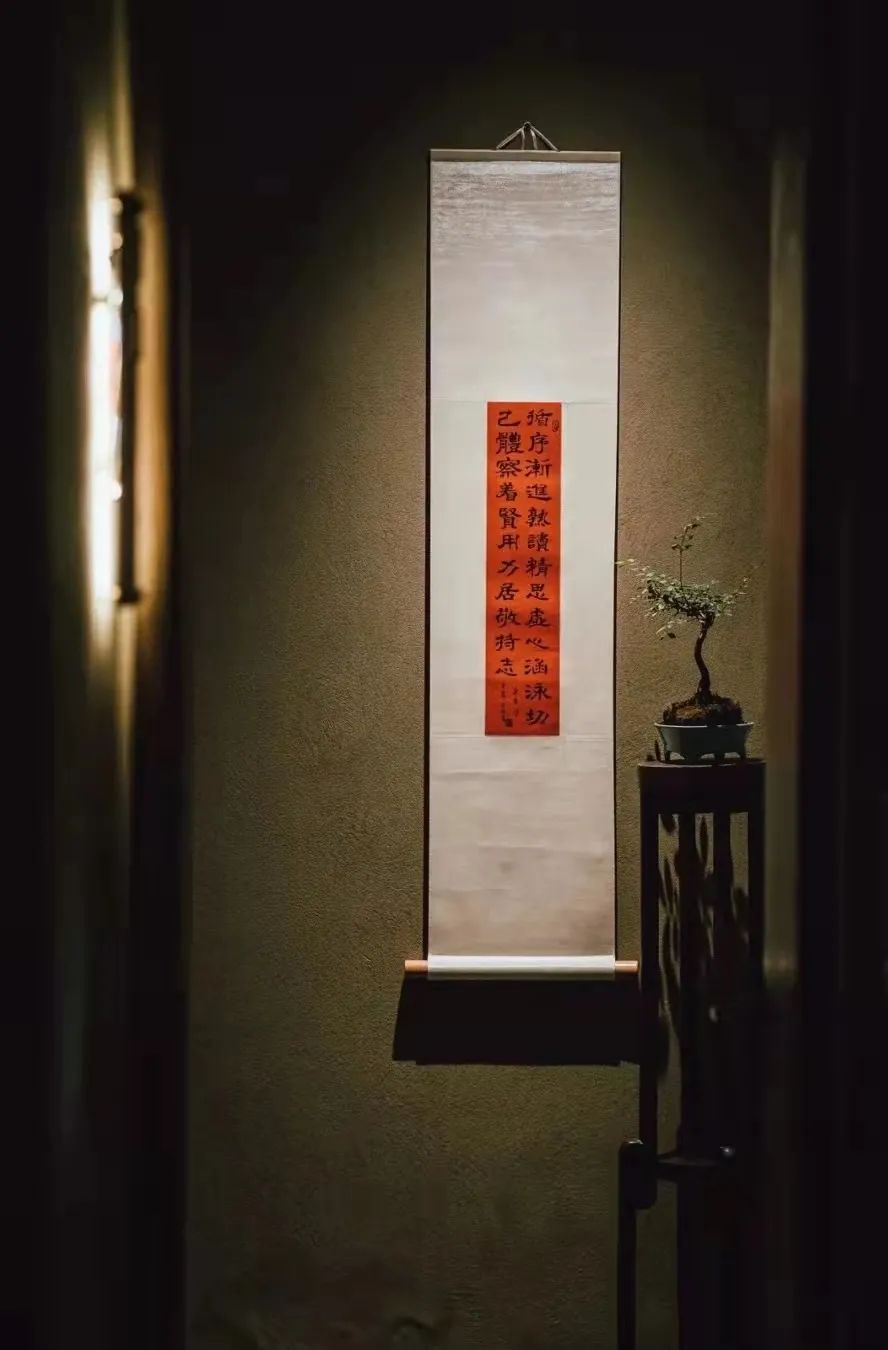 循序漸進熟讀精思虚心涵泳切
己體察着賢用力居敬持志